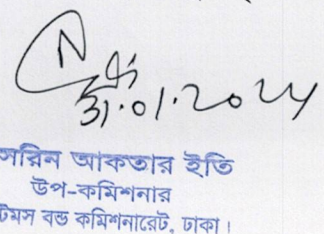 31.01.2024
সরিন আকতার ইতি
উপ-কমিশনার
টমস বন্ড কমিশনারেট, ঢাকা।